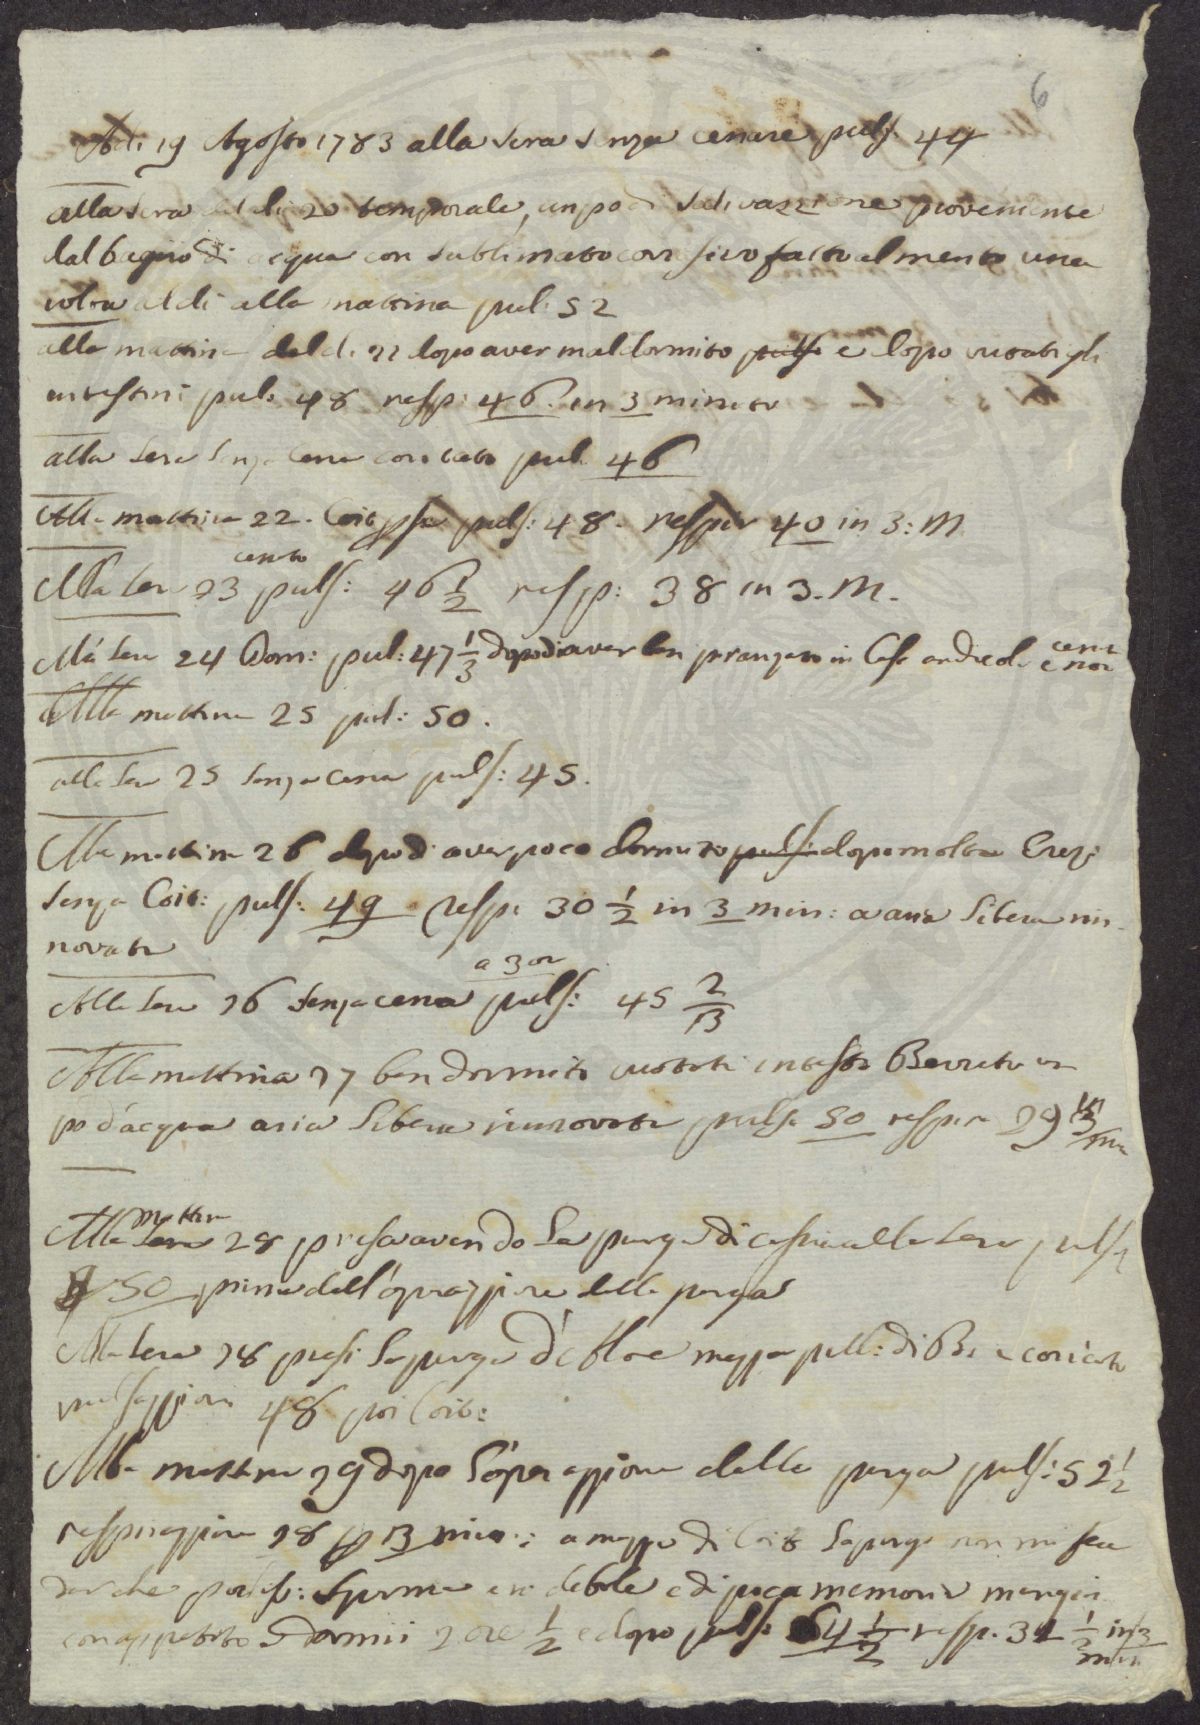 6
Adi 19 Agosto 1783 alla sera senza cenare puls. 44
alla sera del di 20 temporale, un po di salivazzione proveniente
dal bagno di acqua con sublimato corrosivo fatto almento una
volta al di alla mattina pul: 52
alla mattina del di 22 dopo aver mal dormito puls: e dopo vuotati gli
intestini pul: 48 resp: 46. in 3 minuti
alla sera senza cena pul. 46
Alla mattina 22. Coit puls: 48. respir 40 in 3: M
cenato
Alla sera 23 puls: 46 1/2 resp: 38 in 3. M.
Alla sera 24 Dom: pul: 47 1/3 dopo di aver ben pranzato in Casa
Alla mattina 25 pul: 50.
alla sera 25 senza cena puls: 45.
Alla mattina 26 dopo di aver poco dormito puls: dopo molta Erez:
senza Coit: puls: 49 resp: 30 1/2 in 3 min: a aria libera rin-
novata
a 3 or
Alla sera 26 senza cena puls: 45 2/13
Alla mattina 27 ben dormito vuotati intesti Bevuto un
po d'acqua aria libera rinnovata puls: 50 respir 29
mattin
Alla sera 28 presa avendo la purga di cassia alla sera puls:
50 prima dell'operazzione della purga
Alla sera 28 presi la purga d'Aloe mezza pill: di e coricato
pulsazzioni 48 poi Coit:
Alla mattina 29 dopo l'operazzione della purga puls: 52 1/2
respirazzione 28 13 min: a mezzo di Coit la purga non mi fece
dar che sperma ero debole e di poca memoria mangiai
con appetito dormii 2 ore 1/2 e dopo puls: 64 1/2 resp. 31 1/2 in 3
min